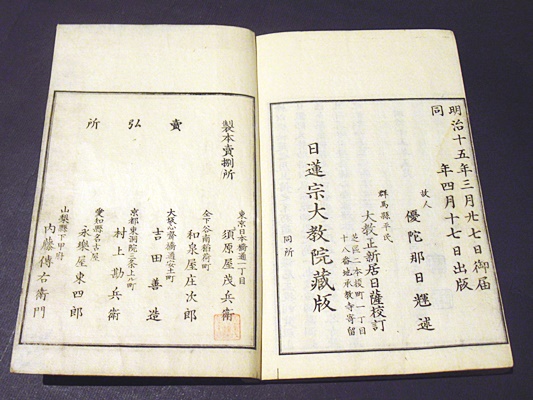 明治十五年三月廿七日御届
同　　年四月十七日出版
故人
優陀那日輝述
群馬縣平民
大教正新居日薩校訂
芝區二本榎町一丁目
十八番地承教寺寄留
日蓮宗大教院藏版
同所
製本賣捌所
東京日本橋通一丁目
須原屋茂兵衛
仝下谷南稲荷町
和泉屋庄次郎
賣
吉田善造
弘
村上勘兵衛
愛知縣名古屋
永樂屋東四郎
所
山梨縣下甲府
内藤傳右衛門